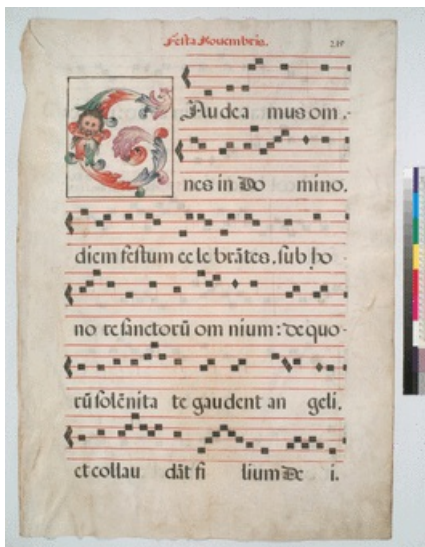 Festa Nouembris.
Audea mus om.
nes in Do mino.
diem festum ce le brãtes. sub ho
no re sanctorũ om nium: de quo
rũ solẽnita te gaudent an geli.
et collau dãt fi lium De i.